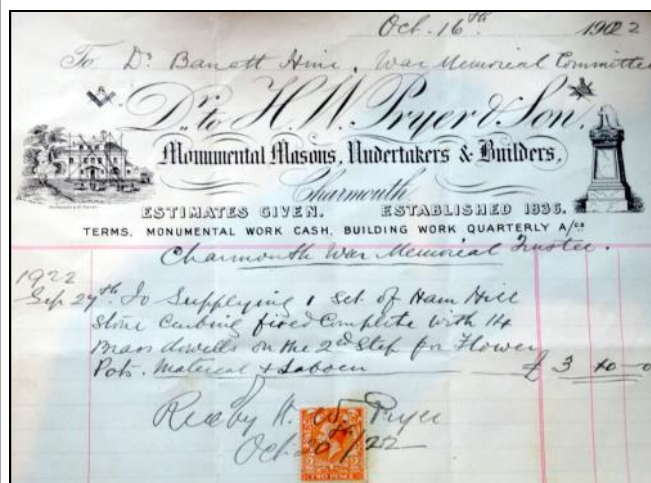 Oct. 16th 1922
To Dr. Barrett Hine, War Memorial Committee
Dr. to H.W. Pryer & Son.
Monumental Masons, Undertakers & Builders,
Charmouth
ESTIMATES GIVEN. ESTABLISHED 1836.
TERMS. MONUMENTAL WORK CASH. BUILDING WORK QUARTERLY A/cs
Charmouth War Memorial Trustee.
1922
Sep 27th To Supplying 1 Set of Ham Hill
Stone Curbing fixed Complete with 14
Brass dowells on the 2nd Step for Flower
Pots. Material & Labour £ 3 10 0
Rec by H. W. Pryer
Oct 20th/22
TWO PENCE